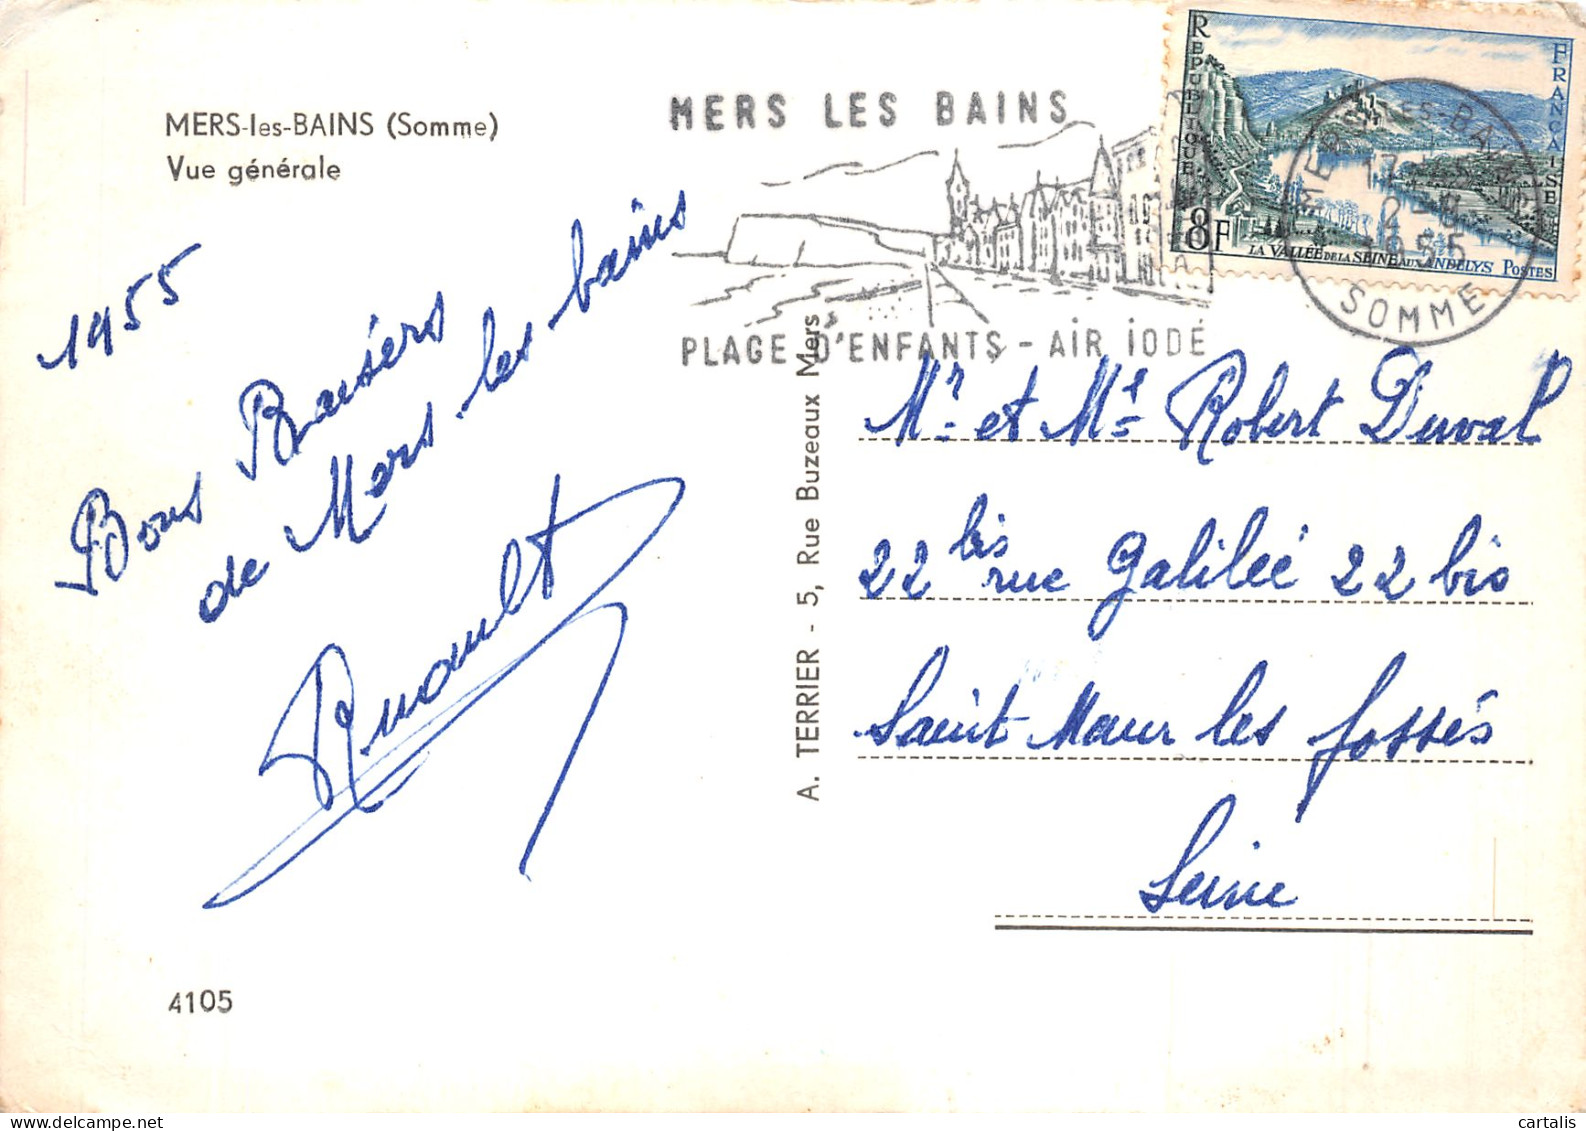 MERS-les-BAINS (Somme)
Vue générale
1955
Bons Baisers
de Mers-les-bains
Ruault
4105
A. TERRIER - 5, Rue Buzeaux Mers
MERS LES BAINS
PLAGE D'ENFANTS - AiR iODÉ
REPUBLIQUE
FRANÇAISE
8F
LA VALLÉE DE LA SEINE AUX ANDELYS POSTES
MERS-LES-BAINS
2-8
1955
SOMME
Mr et Me Robert Duval
22 bis rue Galileé 22 bis
Saint Maur les fossés
Seine
cartalis